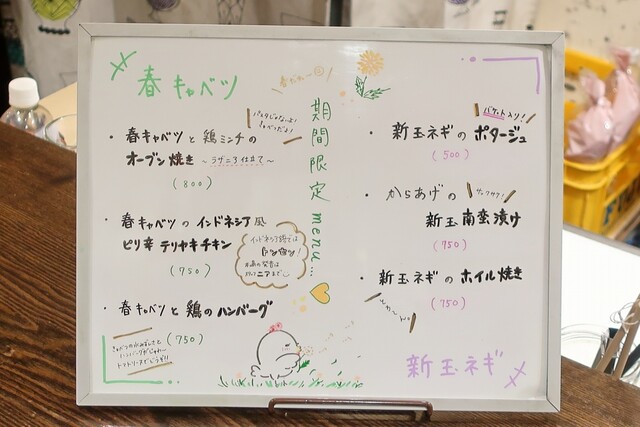 春キャベツ
春キャベツと鶏ミンチの
オーブン焼き ～ラザニア仕立て～
(800)
春キャベツのインドネシア風
ピリ辛テリヤキチキン
(750)
インドネシア語では
春キャベツと鶏のハンバーグ
(750)
期間限定menu...
バゲット入り!
新玉ネギのポタージュ
(500)
からあげの
サックサク!
新玉南蛮漬け
(750)
新玉ネギのホイル焼き
(750)
新玉ネギ